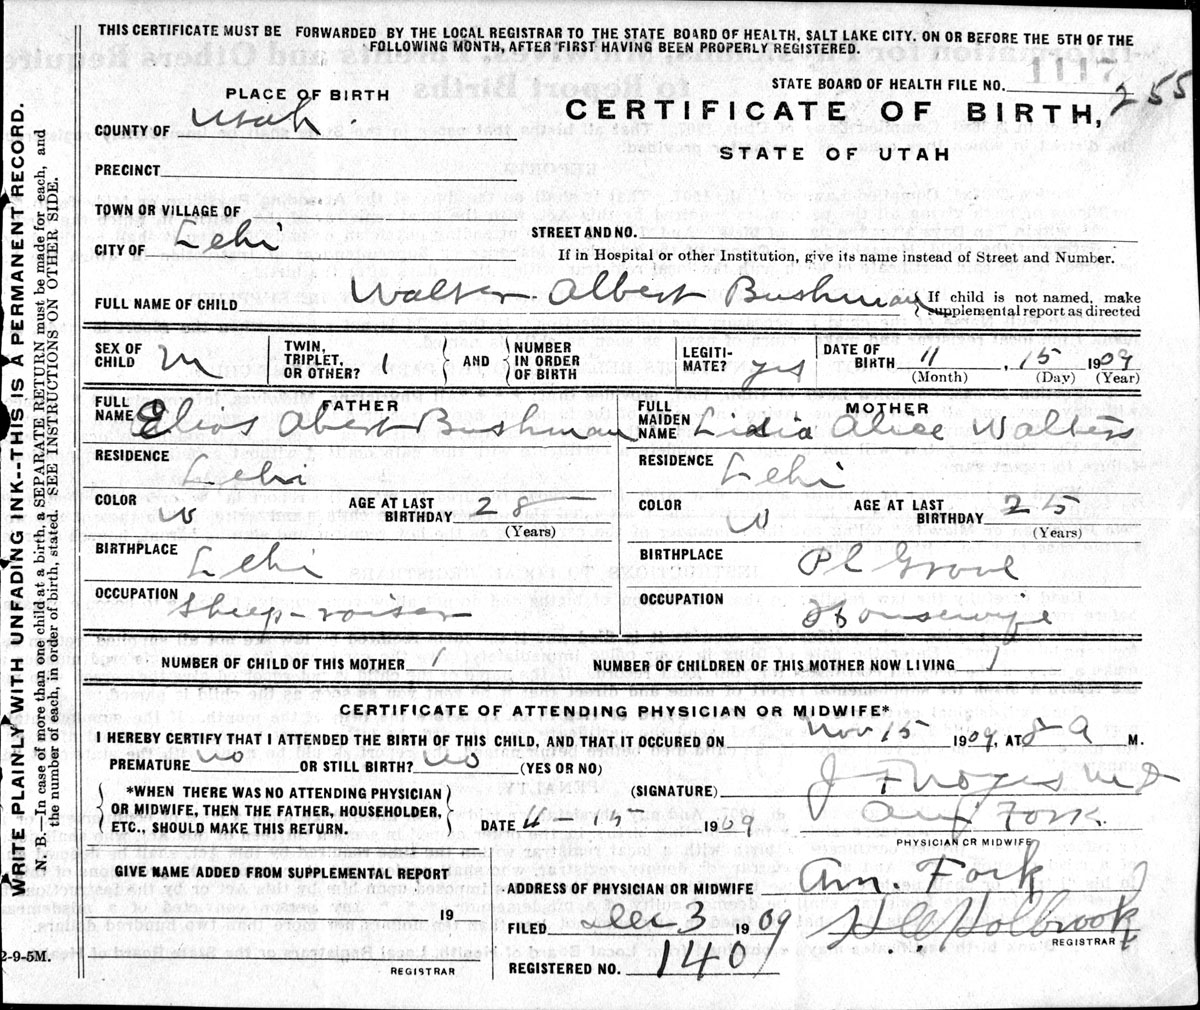 THIS CERTIFICATE MUST BE FORWARDED BY THE LOCAL REGISTRAR TO THE STATE BOARD OF HEALTH, SALT LAKE CITY, ON OR BEFORE THE 5TH OF THE
FOLLOWING MONTH, AFTER FIRST HAVING BEEN PROPERLY REGISTERED.
STATE BOARD OF HEALTH FILE NO. 255
PLACE OF BIRTH
CERTIFICATE OF BIRTH,
COUNTY OF Utah.
STATE OF UTAH
PRECINCT
TOWN OR VILLAGE OF
CITY OF Lehi
STREET AND NO.
If in Hospital or other Institution, give its name instead of Street and Number.
FULL NAME OF CHILD Walter Albert Bushman { If child is not named, make
supplemental report as directed
SEX OF CHILD M TWIN, TRIPLET, OR OTHER? 1 AND NUMBER IN ORDER OF BIRTH LEGITI-MATE? yes DATE OF BIRTH 11, 15 1909
(Month) (Day) (Year)
FATHER
FULL NAME Elias Abert Bushman
MOTHER
FULL MAIDEN NAME Lidia Alice Walters
RESIDENCE Lehi
RESIDENCE Lehi
COLOR W AGE AT LAST BIRTHDAY 28 (Years)
COLOR W AGE AT LAST BIRTHDAY 25 (Years)
BIRTHPLACE Lehi
BIRTHPLACE Pl Grove
OCCUPATION Sheep-raiser
OCCUPATION Housewife
NUMBER OF CHILD OF THIS MOTHER 1 NUMBER OF CHILDREN OF THIS MOTHER NOW LIVING 1
CERTIFICATE OF ATTENDING PHYSICIAN OR MIDWIFE*
I HEREBY CERTIFY THAT I ATTENDED THE BIRTH OF THIS CHILD, AND THAT IT OCCURED ON Nov 15 1909, AT 8 A M.
PREMATURE no OR STILL BIRTH? no (YES OR NO)
*WHEN THERE WAS NO ATTENDING PHYSICIAN
OR MIDWIFE, THEN THE FATHER, HOUSEHOLDER,
ETC., SHOULD MAKE THIS RETURN.
(SIGNATURE) J F Noyes MD
DATE 1909 Am Fork
PHYSICIAN OR MIDWIFE
GIVE NAME ADDED FROM SUPPLEMENTAL REPORT
19
REGISTRAR
ADDRESS OF PHYSICIAN OR MIDWIFE Am. Fork
FILED Dec 3 1909 Holbrook
REGISTRAR
REGISTERED NO. 140
WRITE PLAINLY WITH UNFADING INK--THIS IS A PERMANENT RECORD.
N. B.—In case of more than one child at a birth, a SEPARATE RETURN must be made for each, and
the number of each, in order of birth, stated. SEE INSTRUCTIONS ON OTHER SIDE.
2-9-5M.